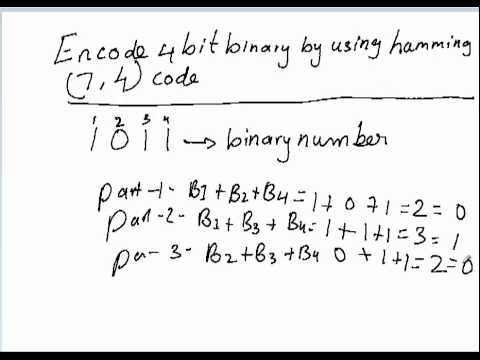 Encode 4 bit binary by using hamming
(7,4) code
1 2 3 4
1 0 1 1 → binary number
part-1- B1 + B2 + B4 = 1 + 0 + 1 = 2 = 0
part-2- B1 + B3 + B4 = 1 + 1 + 1 = 3 = 1
pa- 3- B2 + B3 + B4 0 + 1 + 1 = 2 = 0